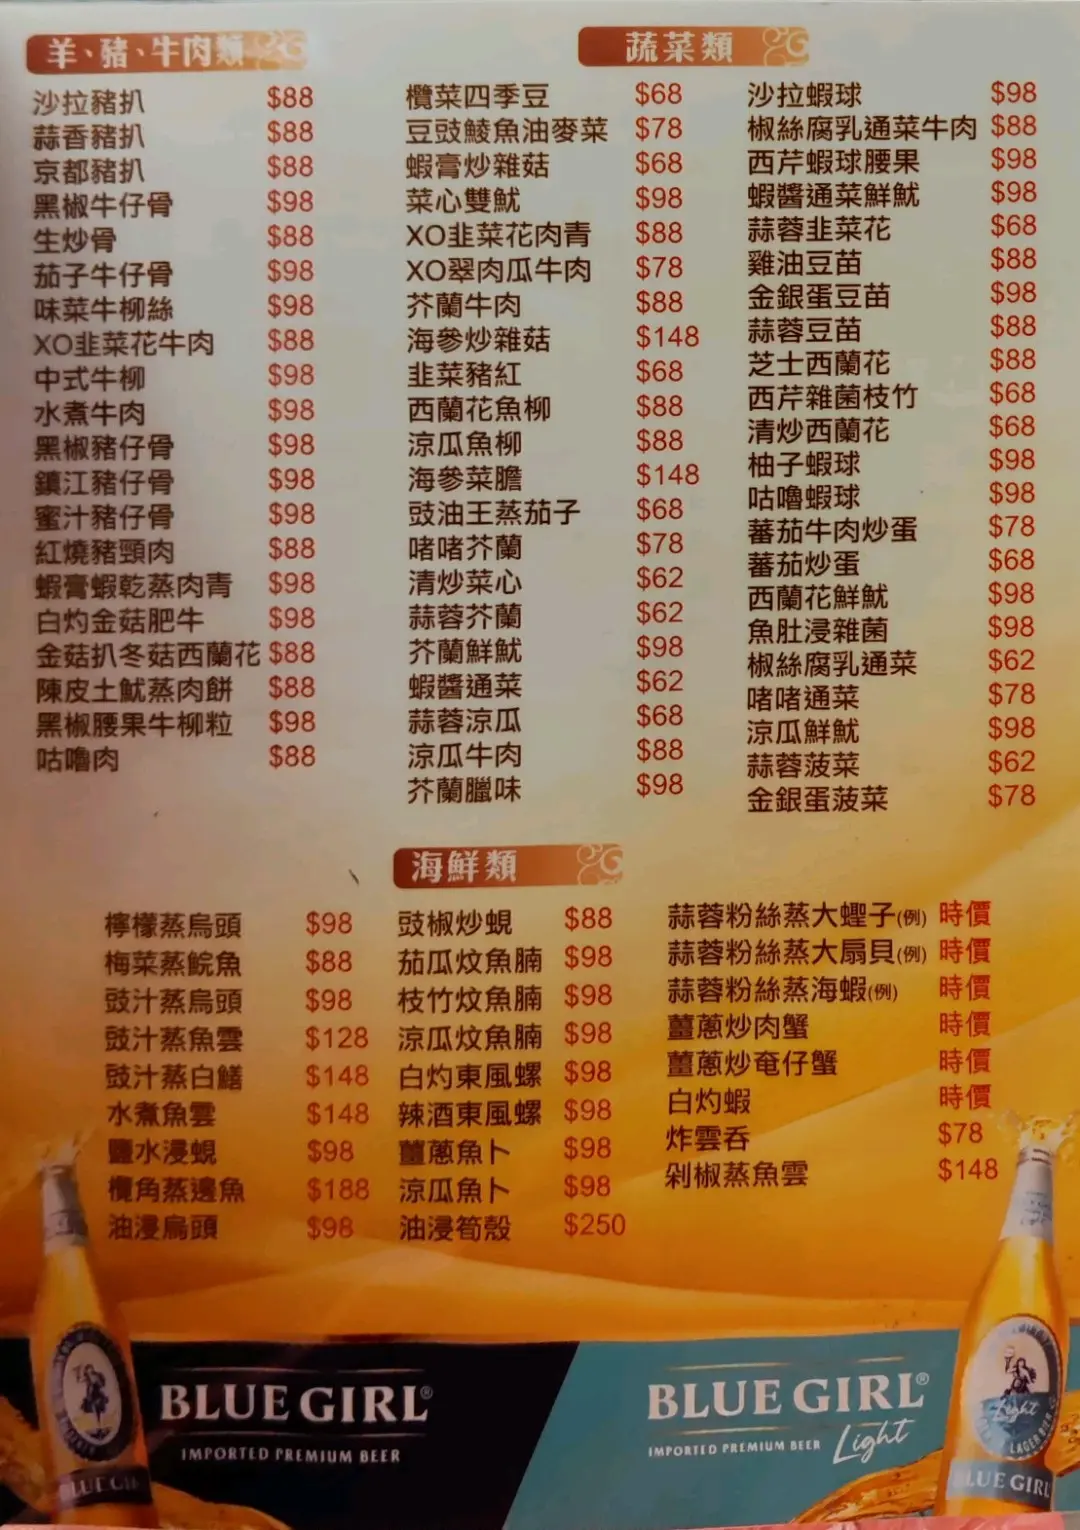 羊、豬、牛肉類
沙拉豬扒 $88
蒜香豬扒 $88
京都豬扒 $88
黑椒牛仔骨 $98
生炒骨 $88
茄子牛仔骨 $98
味菜牛柳絲 $98
XO韭菜花牛肉 $88
中式牛柳 $98
水煮牛肉 $98
黑椒豬仔骨 $98
鎮江豬仔骨 $98
蜜汁豬仔骨 $98
紅燒豬頸肉 $88
蝦膏蝦乾蒸肉青 $98
白灼金菇肥牛 $98
金菇扒冬菇西蘭花 $88
陳皮土魷蒸肉餅 $88
黑椒腰果牛柳粒 $98
咕嚕肉 $88
蔬菜類
欖菜四季豆 $68
豆豉鯪魚油麥菜 $78
蝦膏炒雜菇 $68
菜心雙魷 $98
XO韭菜花肉青 $88
XO翠肉瓜牛肉 $78
芥蘭牛肉 $88
海參炒雜菇 $148
韭菜豬紅 $68
西蘭花魚柳 $88
涼瓜魚柳 $88
海參菜膽 $148
豉油王蒸茄子 $68
啫啫芥蘭 $78
清炒菜心 $62
蒜蓉芥蘭 $62
芥蘭鮮魷 $98
蝦醬通菜 $62
蒜蓉涼瓜 $68
涼瓜牛肉 $88
芥蘭臘味 $98
沙拉蝦球 $98
椒絲腐乳通菜牛肉 $88
西芹蝦球腰果 $98
蝦醬通菜鮮魷 $98
蒜蓉韭菜花 $68
雞油豆苗 $88
金銀蛋豆苗 $98
蒜蓉豆苗 $88
芝士西蘭花 $88
西芹雜菌枝竹 $68
清炒西蘭花 $68
柚子蝦球 $98
咕嚕蝦球 $98
蕃茄牛肉炒蛋 $78
蕃茄炒蛋 $68
西蘭花鮮魷 $98
魚肚浸雜菌 $98
椒絲腐乳通菜 $62
啫啫通菜 $78
涼瓜鮮魷 $98
蒜蓉菠菜 $62
金銀蛋菠菜 $78
海鮮類
檸檬蒸烏頭 $98
梅菜蒸鯇魚 $88
豉汁蒸烏頭 $98
豉汁蒸魚雲 $128
豉汁蒸白鱔 $148
水煮魚雲 $148
鹽水浸蜆 $98
欖角蒸邊魚 $188
油浸烏頭 $98
豉椒炒蜆 $88
茄瓜炆魚腩 $98
枝竹炆魚腩 $98
涼瓜炆魚腩 $98
白灼東風螺 $98
辣酒東風螺 $98
薑蔥魚卜 $98
涼瓜魚卜 $98
油浸筍殼 $250
蒜蓉粉絲蒸大蟶子(例) 時價
蒜蓉粉絲蒸大扇貝(例) 時價
蒜蓉粉絲蒸海蝦(例) 時價
薑蔥炒肉蟹 時價
薑蔥炒奄仔蟹 時價
白灼蝦 時價
炸雲吞 $78
剁椒蒸魚雲 $148
BLUE GIRL®
IMPORTED PREMIUM BEER
BLUE GIRL®
IMPORTED PREMIUM BEER Light
Light
LAGER BEER
BLUE GIRL